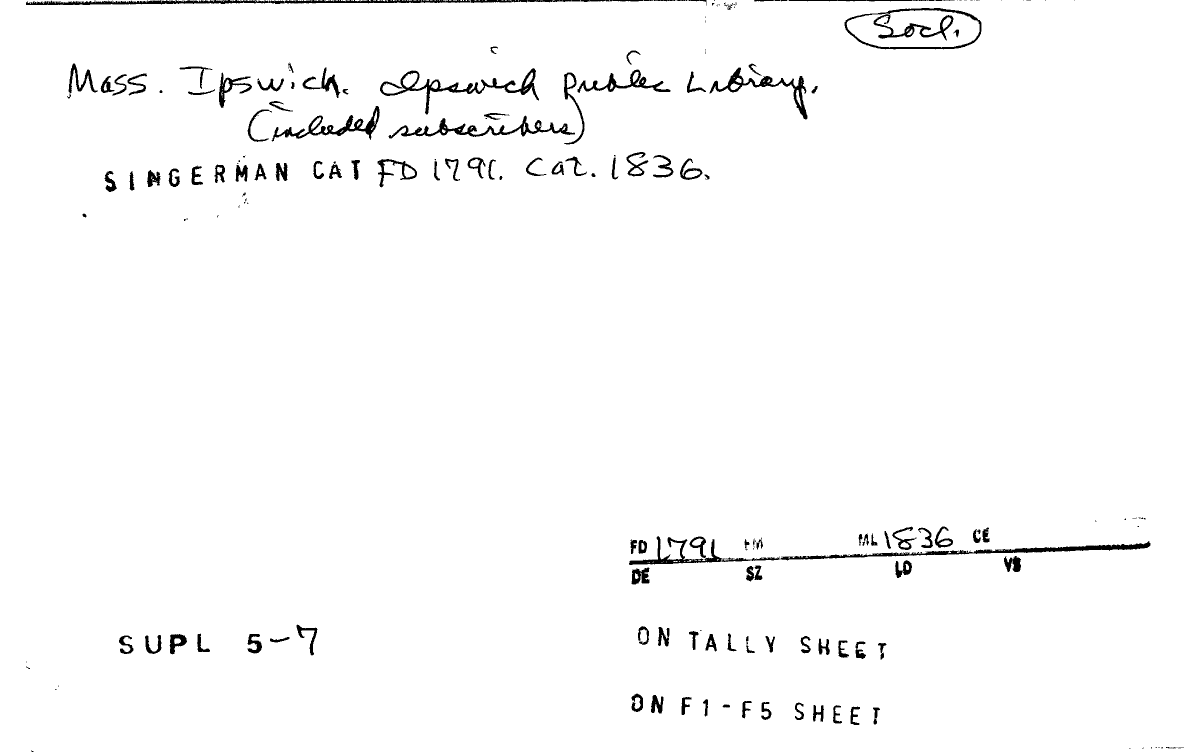 Socl.
Mass. Ipswich. Ipswich Public Library.
(included subscribers)
SINGERMAN CAT FD 1791. Cat. 1836.
FD 1791 FM ML 1836 CE
DE SZ LD VS
SUPL 5-7
ON TALLY SHEET
ON F1-F5 SHEET